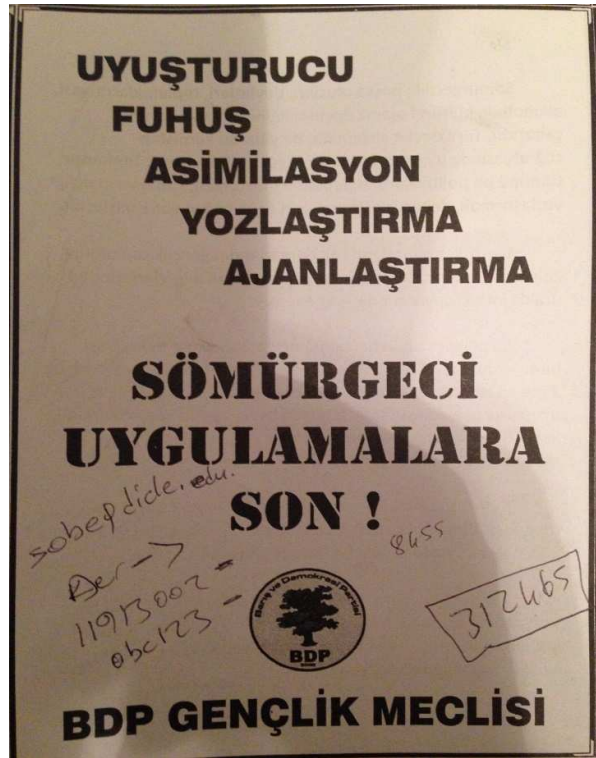 UYUŞTURUCU
FUHUŞ
ASİMİLASYON
YOZLAŞTIRMA
AJANLAŞTIRMA
SÖMÜRGECİ
UYGULAMALARA
SON !
sobe@dicle.edu.
8455
Der ->
11913002 -
abc123 -
312465
Barış ve Demokrasi Partisi
BDP
BDP GENÇLİK MECLİSİ